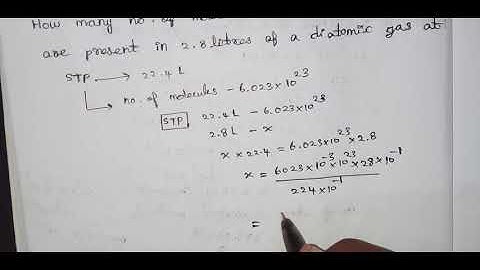 How many no. of
are present in 2.8 litres of a diatomic gas at
STP → 22.4 L
no. of molecules - 6.023×10²³
STP 22.4L - 6.023×10²³
2.8L - x
x × 22.4 = 6.023×10²³ × 2.8
x = 6023×10⁻³×10²³×28×10⁻¹
224×10⁻¹
=